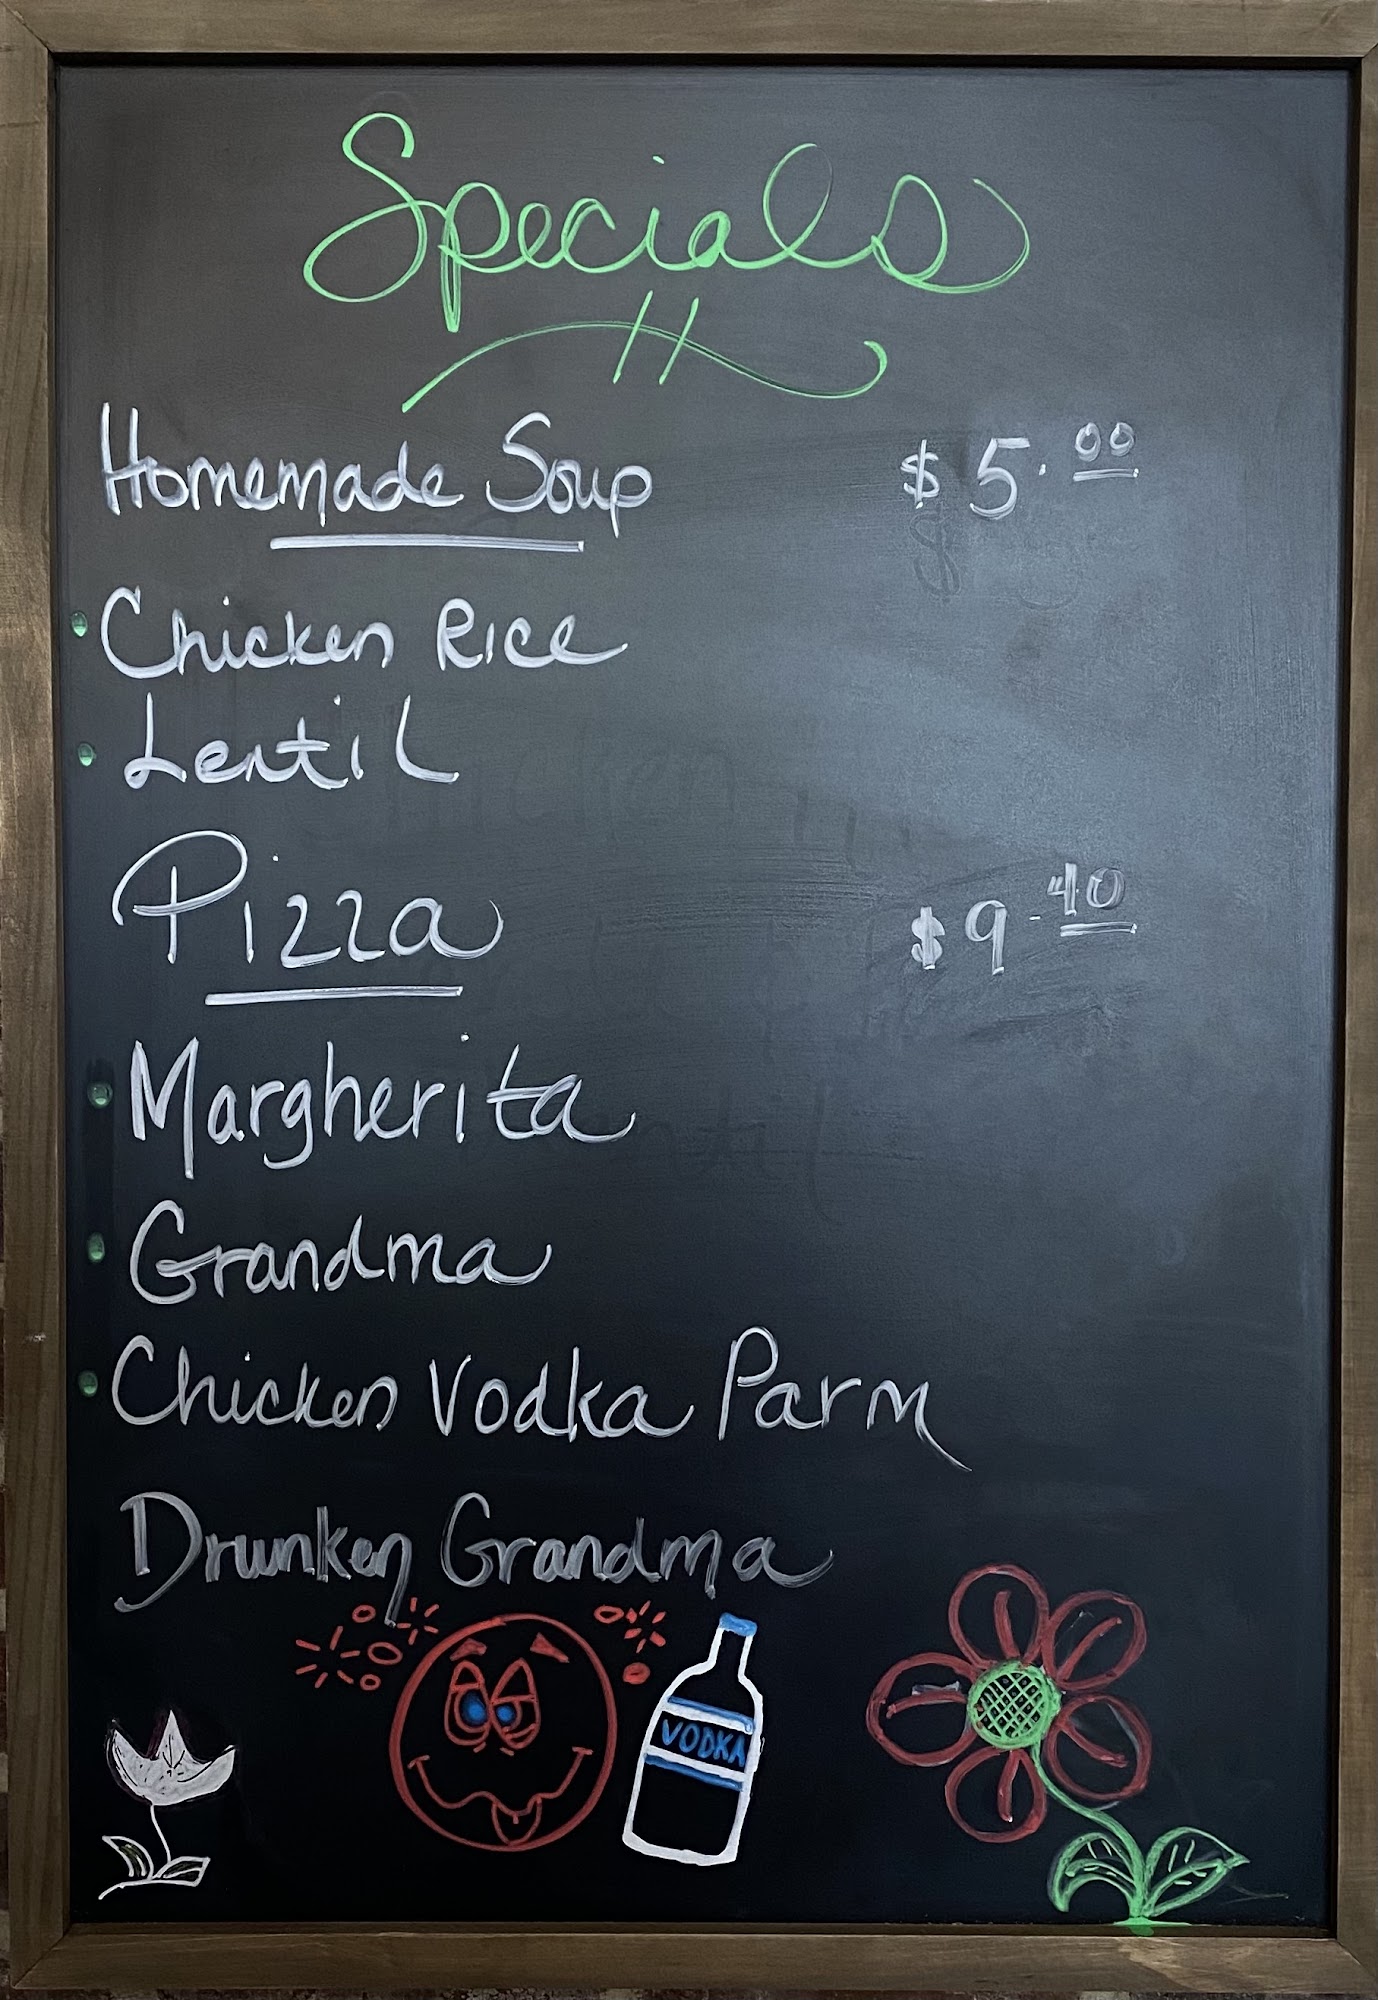 Specials
Homemade Soup $5.00
Chicken Rice
Lentil
Pizza $9.40
Margherita
Grandma
Chicken Vodka Parm
Drunken Grandma
VODKA